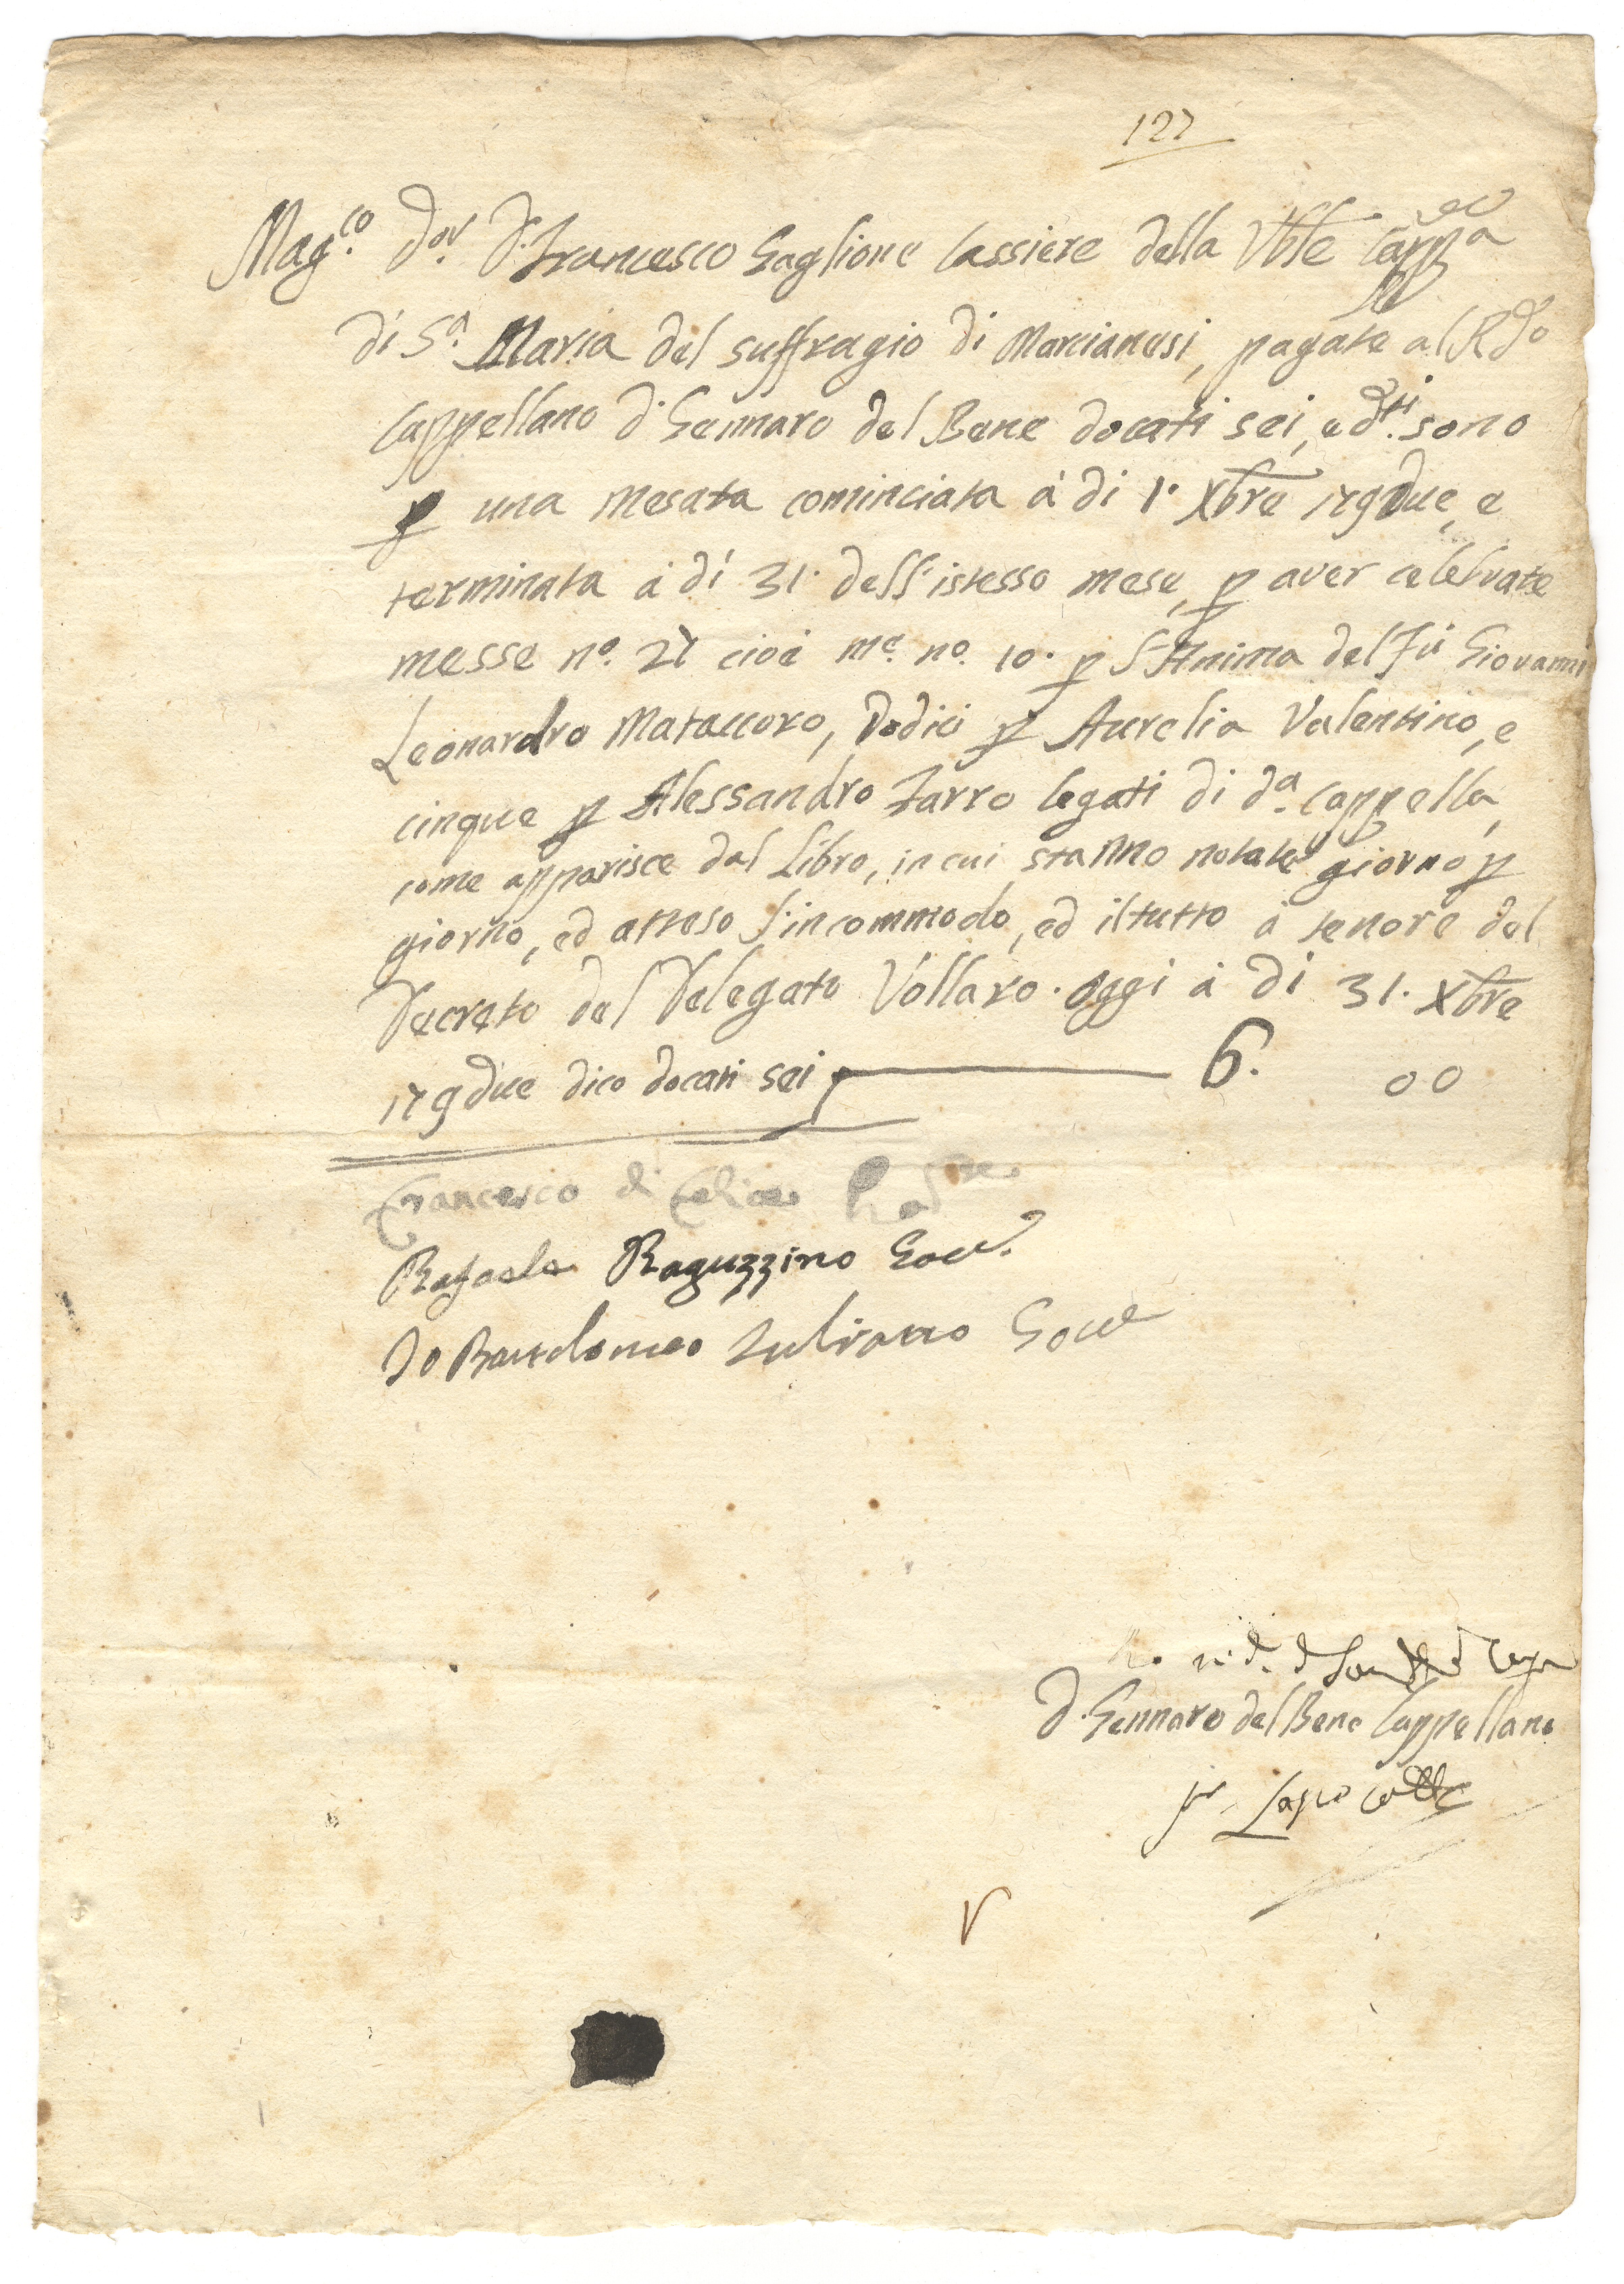 127
Mag.co D.or D. Francesco Gaglione Cassiere della Vble Capp.a
di S.a Maria del suffragio di Marcianesi, pagate al Rdo
Cappellano D. Gennaro del Bene docati sei, e d.ti sono
p una mesata cominciata à di 1.o Xbre 179due, e
terminata à di 31. dell'istesso mese, p aver celebrate
messe n.o 27 cioè m.e n.o 10. p l'Anima del fù Giovanni
Leonardro Mataccoro, Dodici p Aurelia Valentino, e
cinque p Alessandro Zarro legati di d.a Cappella,
come apparisce dal Libro, in cui stanno notate giorno p
giorno, ed atteso l'incommodo, ed il tutto à tenore del
Decreto del Delegato Vollaro. Oggi à di 31. Xbre
179due dico docati sei 6. 00
Francesco di Felice
Rafaele Raguzzino Gov.e
Io Bartolomeo Iulianno Gove
D. Gennaro del Bene Cappellano